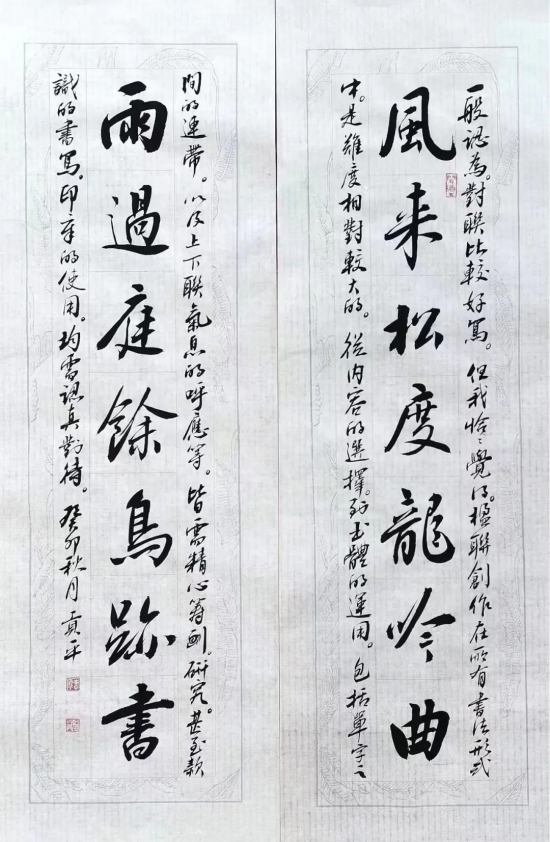 一般認為。對聯比較好寫。但我恰恰覺得。楹聯創作在所有書法形式
風来松度龍吟曲
中。是難度相對較大的。從內容的選擇。到書體的運用。包括單字之
間的連帶。以及上下聯氣息的呼應等。皆需精心籌劃。研究。甚至款
雨過庭餘鳥跡書
識的書寫。印章的使用。均需認真對待。癸卯秋月 貢平